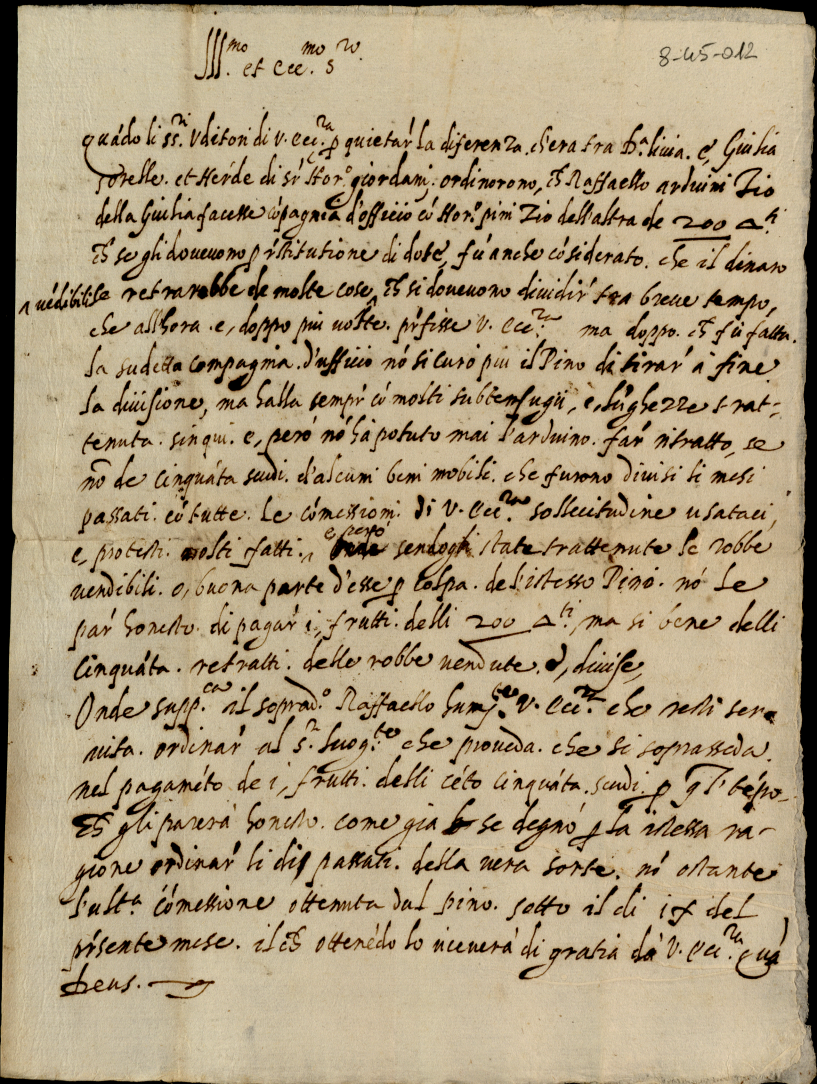 Ill.mo et Ecc.mo S.or
8-45-012
Quádo li ss.ri Vditori di V. Ecc.za p quietar la diferenza. ch'era tra D.a liuia. e, Giulia
sorelle. et Herede di s.r Hor.o giordani. ordinorono, ch Raffaello arduini Zio
della Giulia facesse cópagnia d'officio có Hor.o pini Zio dell'altra de 200 Δ.ti
ch se gli doueuono p ristitutione di dote, fú anche cósiderato. che il dinaro
^ védibili se retrarebbe de molte cose ^ ch si doueuono diuidir tra breue tempo,
che all'hora. e, doppo piu uolte. prfisse V. Ecc.za ma doppo. ch fú fatta.
la sudetta compagnia. d'ufficio nó si curó piu il Pino di tirar á fine
la diuisione, ma halla sempr có molti subterfugii, e, lúghezze trat-
tenuta. sin qui. e, peró nó há potuto mai l'arduino. far ritratto, se
nó de cinquáta scudi. d'alcuni beni mobili. che furono diuisi li mesi
passati. có tutte. le cómessioni. di V. Ecc.za sollecitudine usataci,
e, protesti. molti fatti. ^ e peró sendogli state trattenute le robbe
vendibili. o, buona parte d'esse p colpa. de l'istesso Pino. nó le
par honesto. di pagar i, frutti. delli 200 Δ.ti, ma si bene delli
cinquáta. retratti. delle robbe uendute. e, diuise,
Onde supp.ca il soprad.o Raffaello hum.te V. Ecc.za che resti ser-
uita. ordinar al s.r luog.te che proueda. che si soprasseda.
nel pagaméto de i, frutti. delli céto cinquáta. scudi. p ql tépo-
ch gli parerá honesto. come gia se degnó p la istessa ra-
gione ordinar li dì passati. della uera sorte. nó ostante
l'ult.a cómessione ottenuta dal pino. sotto il di 17 del
prsente mese. il ch ottenédo lo riceuerá di gratia dá V. Ecc.za quá
Deus.